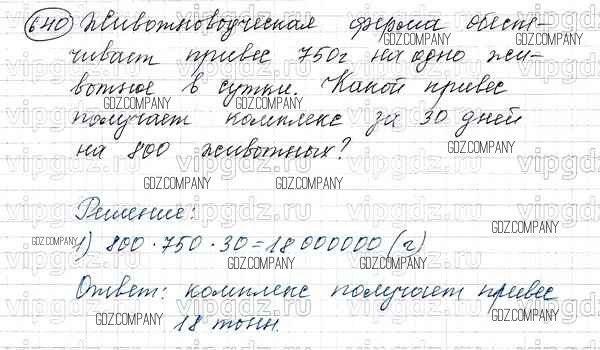 640 Животноводческая ферма обеспе-
чивает привес 750г на одно жи-
вотное в сутки. Какой привес
получает комплекс за 30 дней
на 800 животных?
Решение:
1) 800 · 750 · 30 = 18 000000 (г)
Ответ: комплекс получает привес
18 тонн.